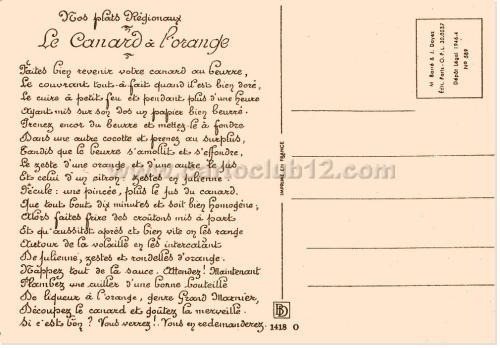 Nos plats Régionaux
Le Canard à l'orange
Faites bien revenir votre canard au beurre,
Le couvrant tout-à fait quand il est bien doré,
Le cuire à petit feu et pendant plus d'une heure
Ayant mis sur son dos un papier bien beurré.
Prenez encor du beurre et mettez-le à fondre
Dans une autre cocotte et prenez au surplus,
Tandis que le beurre s'amollit et s'effondre,
Le zeste d'une orange et d'une autre le jus
Et celui d'un citron; zestes en julienne.
Fécule: une pincée, plus le jus du canard.
Que tout bout dix minutes et soit bien homogène;
Alors faites frire des croûtons mis à part
Et qu'aussitôt après et bien vite on les range
Autour de la volaille en les intercalant
De julienne, zestes et rondelles d'orange.
Nappez tout de la sauce. Attendez! Maintenant
Flambez une cuiller d'une bonne bouteille
De liqueur à l'orange, genre Grand Marnier,
Découpez le canard et goûtez la merveille.
Si c'est bon? Vous verrez!.. Vous en redemanderez.
1418 O
BD
IMPRIMÉ EN FRANCE
M. Barré & J. Dayez
Édit. Paris - O.P.L. 30.0037
Dépôt Légal 1946-4
No 589
www.cartoclub12.com